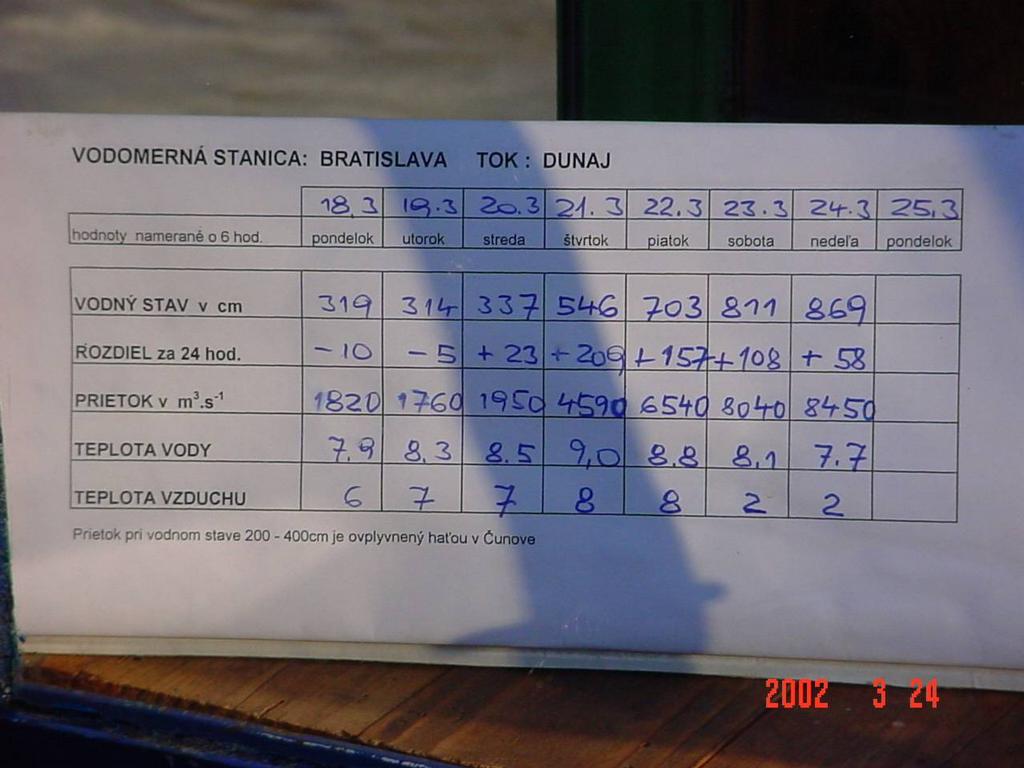 VODOMERNÁ STANICA: BRATISLAVA TOK : DUNAJ
18.3 19.3 20.3 21.3 22.3 23.3 24.3 25.3
hodnoty namerané o 6 hod. pondelok utorok streda štvrtok piatok sobota nedeľa pondelok
VODNÝ STAV v cm 319 314 337 546 703 811 869
ROZDIEL za 24 hod. -10 -5 +23 +209 +157 +108 +58
PRIETOK v m³.s⁻¹ 1820 1760 1950 4590 6540 8040 8450
TEPLOTA VODY 7.9 8.3 8.5 9,0 8.8 8.1 7.7
TEPLOTA VZDUCHU 6 7 7 8 8 2 2
Prietok pri vodnom stave 200 - 400cm je ovplyvnený haťou v Čunove
2002 3 24